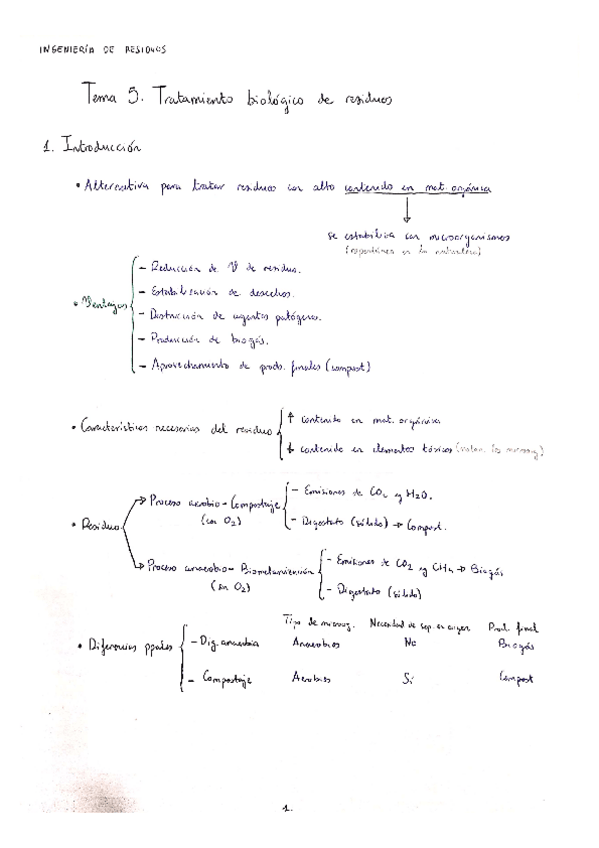 INGENIERÍA DE RESIDUOS
Tema 5. Tratamiento biológico de residuos
1. Introducción
• Alternativa para tratar residuos con alto contenido en mat. orgánica
se estabiliza con microorganismos
(espontánea en la naturaleza)
• Ventajas
- Reducción de V de residuo.
- Estabilización de desechos.
- Destrucción de agentes patógenos.
- Producción de biogás.
- Aprovechamiento de prods. finales (compost)
• Características necesarias del residuo
↑ contenido en mat. orgánica
↓ contenido en elementos tóxicos (matan los microorg)
• Residuo
→ Proceso aerobio - Compostaje
(con O2)
- Emisiones de CO2 y H2O.
- Digestato (sólido) → Compost.
→ Proceso anaerobio - Biometanización
(sin O2)
- Emisiones de CO2 y CH4 → Biogás
- Digestato (sólido)
Tipo de microorg. Necesidad de sep. en origen Prod. final
• Diferencias ppales
- Dig. anaerobia Anaerobios No Biogás
- Compostaje Aerobios Sí Compost
1.